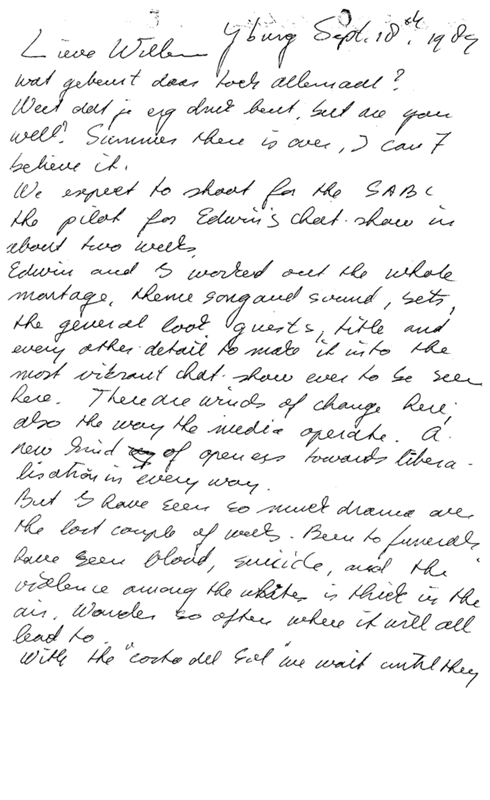 Lieve Willem Yburg Sept. 18th. 1989
wat gebeurt daar toch allemaal?
Weet dat je erg druk bent, but are you
well? Summer there is over, I can't
believe it.
We expect to shoot for the SABC
the pilot for Edwin's chat-show in
about two weeks.
Edwin and I worked out the whole
montage, theme song and sound, sets,
the general look, guests, title and
every other detail to make it into the
most vibrant chat-show ever to be seen
here. There are winds of change here,
also the way the media operate. A
new kind of openess towards libera-
lisation in every way.
But I have seen so much drama over
the last couple of weeks. Been to funerals
have seen blood, suicide, and the
violence among the whites is thick in the
air. Wonder so often where it will all
lead to.
With the "costa del Sol" we wait until they